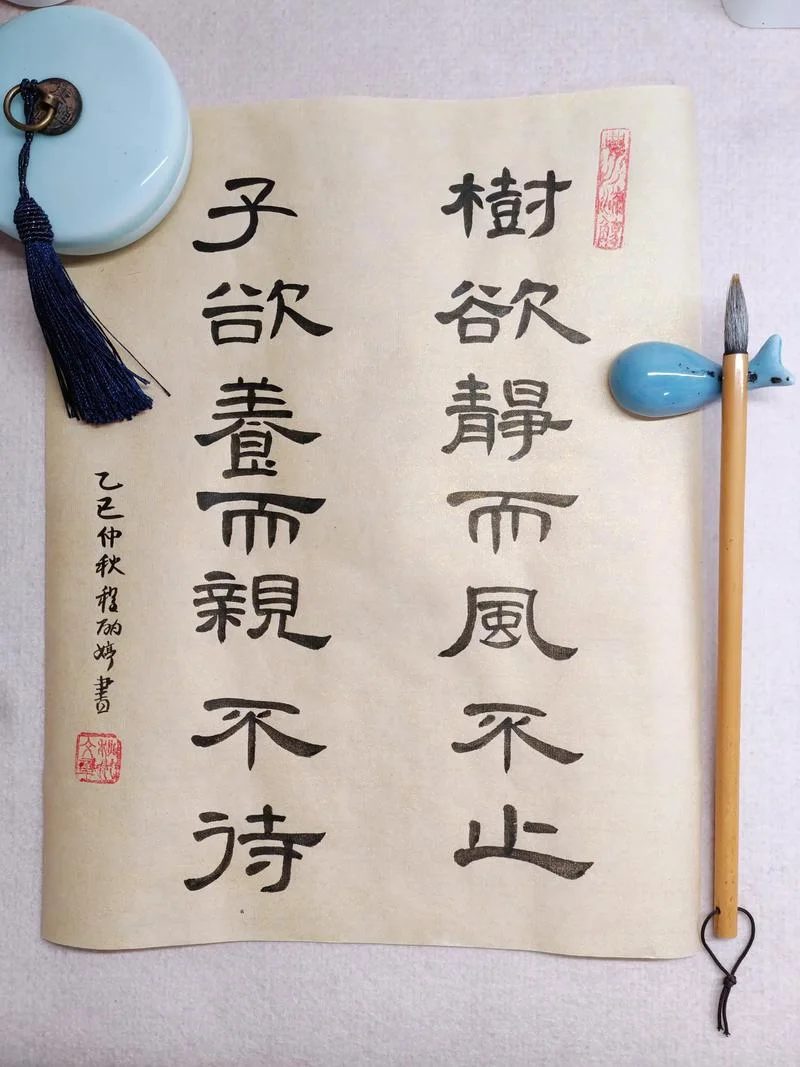 樹欲靜而風不止
子欲養而親不待
乙巳仲秋程婷書